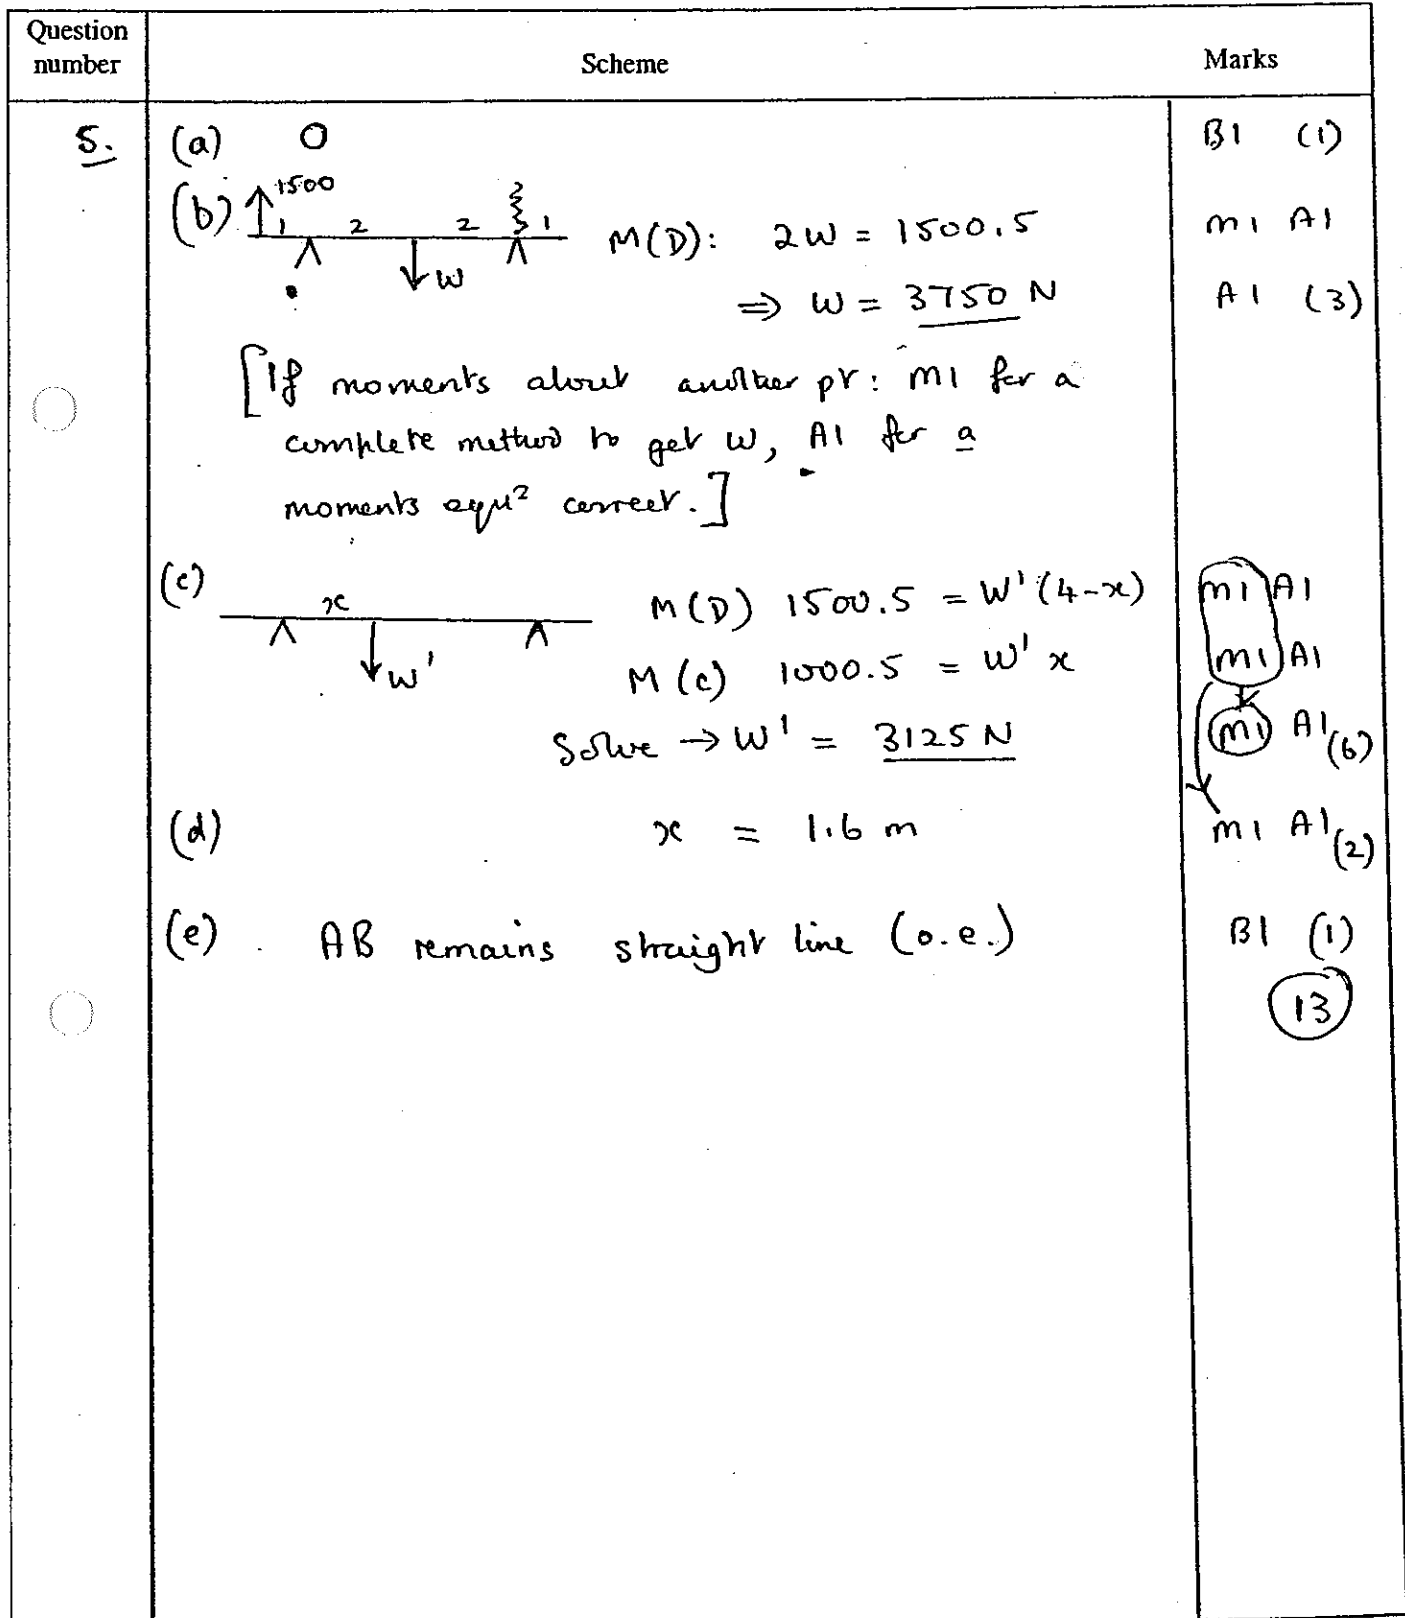 Question number Scheme Marks
5. (a) 0 B1 (1)
(b) 1500 1 2 2 1 W M(D): 2W = 1500.5 M1 A1
⇒ W = 3750 N A1 (3)
[If moments about another pt: M1 for a
complete method to get W, A1 for a
moments equⁿ correct.]
(c) x W' M(D) 1500.5 = W'(4-x) M1 A1
M(C) 1000.5 = W'x M1 A1
Solve → W' = 3125 N M1 A1 (6)
(d) x = 1.6 m M1 A1 (2)
(e) AB remains straight line (o.e.) B1 (1)
13